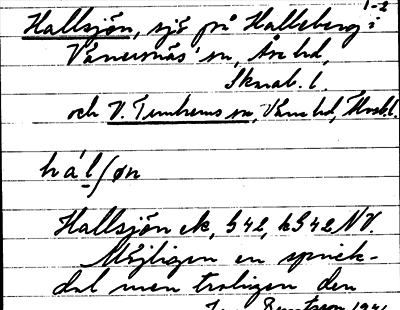 1-2
Hallsjön, sjö på Halleberg i
Vänersnäs' sn, Åse hd,
Skarab. l.
och V. Tunhems sn, Väne hd, Älvsb. l.
hálʃøn
Hallsjön ek, G42, kG42 NV.
Möjligen en sprick-
dal men troligen den